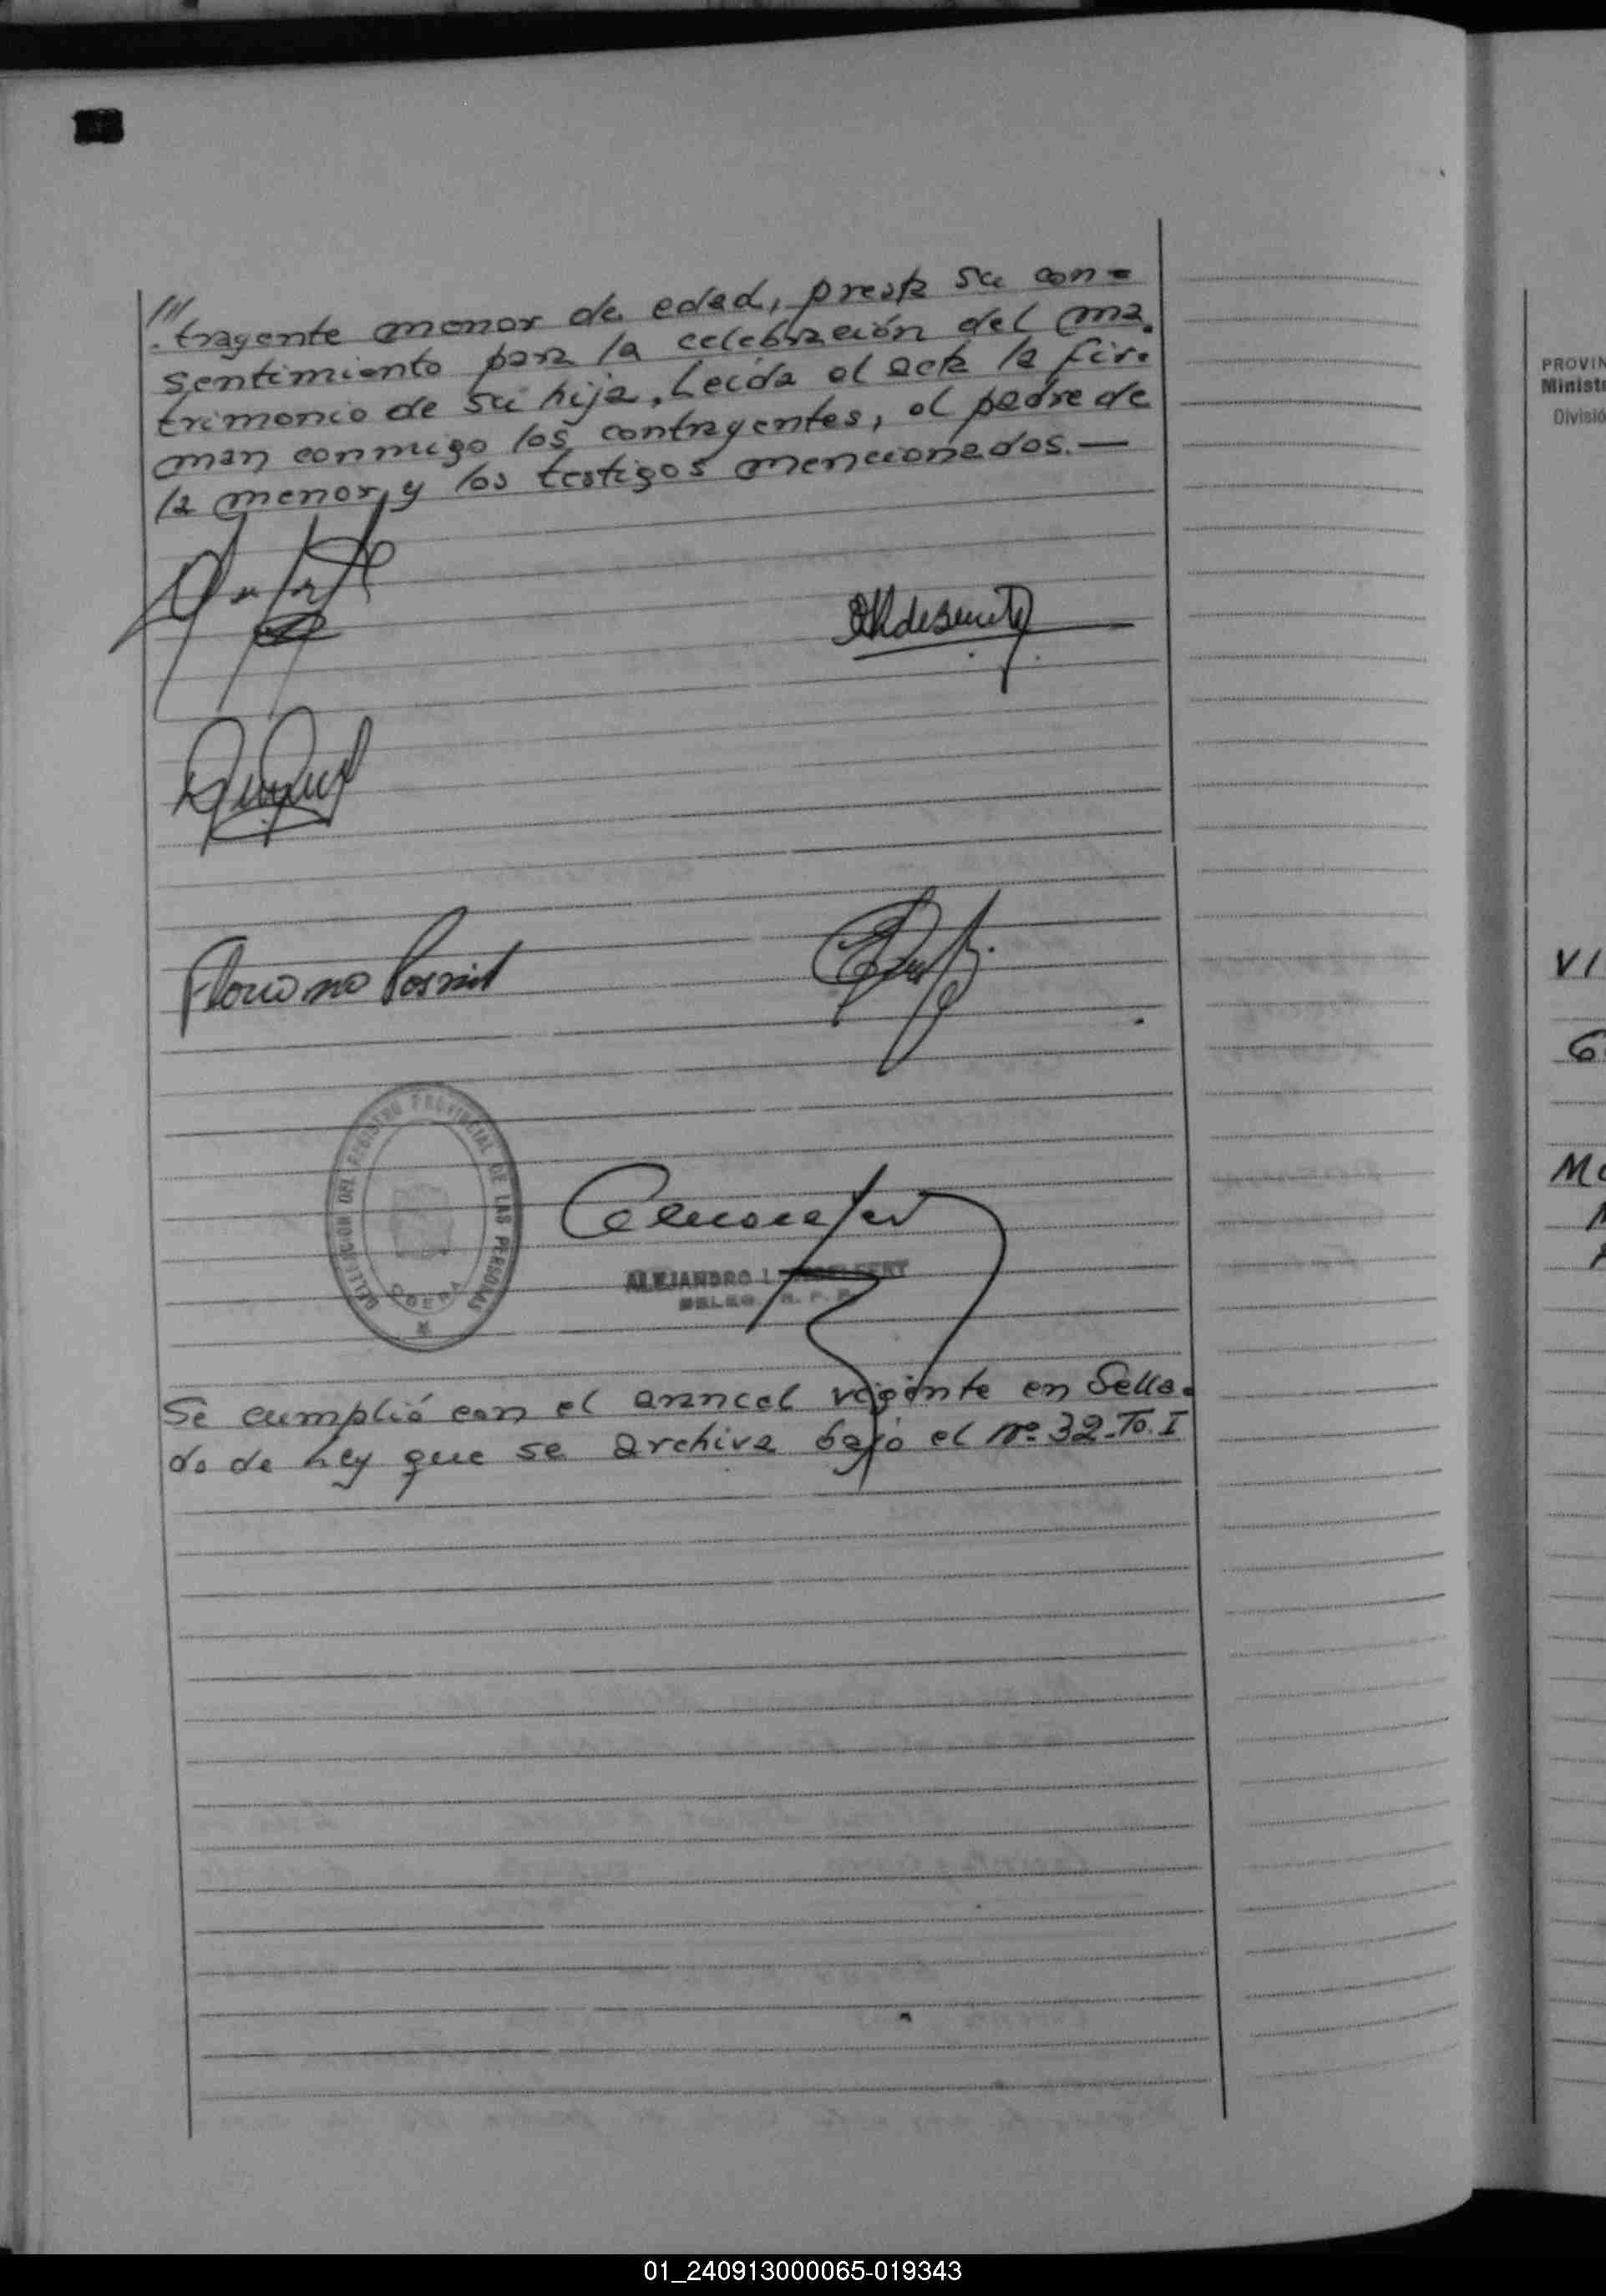 ///
.trayente menor de edad, presta su con=
sentimiento para la celebración del ma.
trimonio de su hija. Leída el acta la fir.
man conmigo los contrayentes, el padre de
la menor, y los testigos mencionados.—
Floriano
DELEGACION DEL REGISTRO PROVINCIAL DE LAS PERSONAS
OBERA
ALEJANDRO L.
DELEG. R. P. P.
Se cumplió con el arancel vigente en Sella.
do de Ley que se archiva bajo el Nº 32-To. I
PROVIN
Ministe
Divisió
VI
G
Mc
01_240913000065-019343